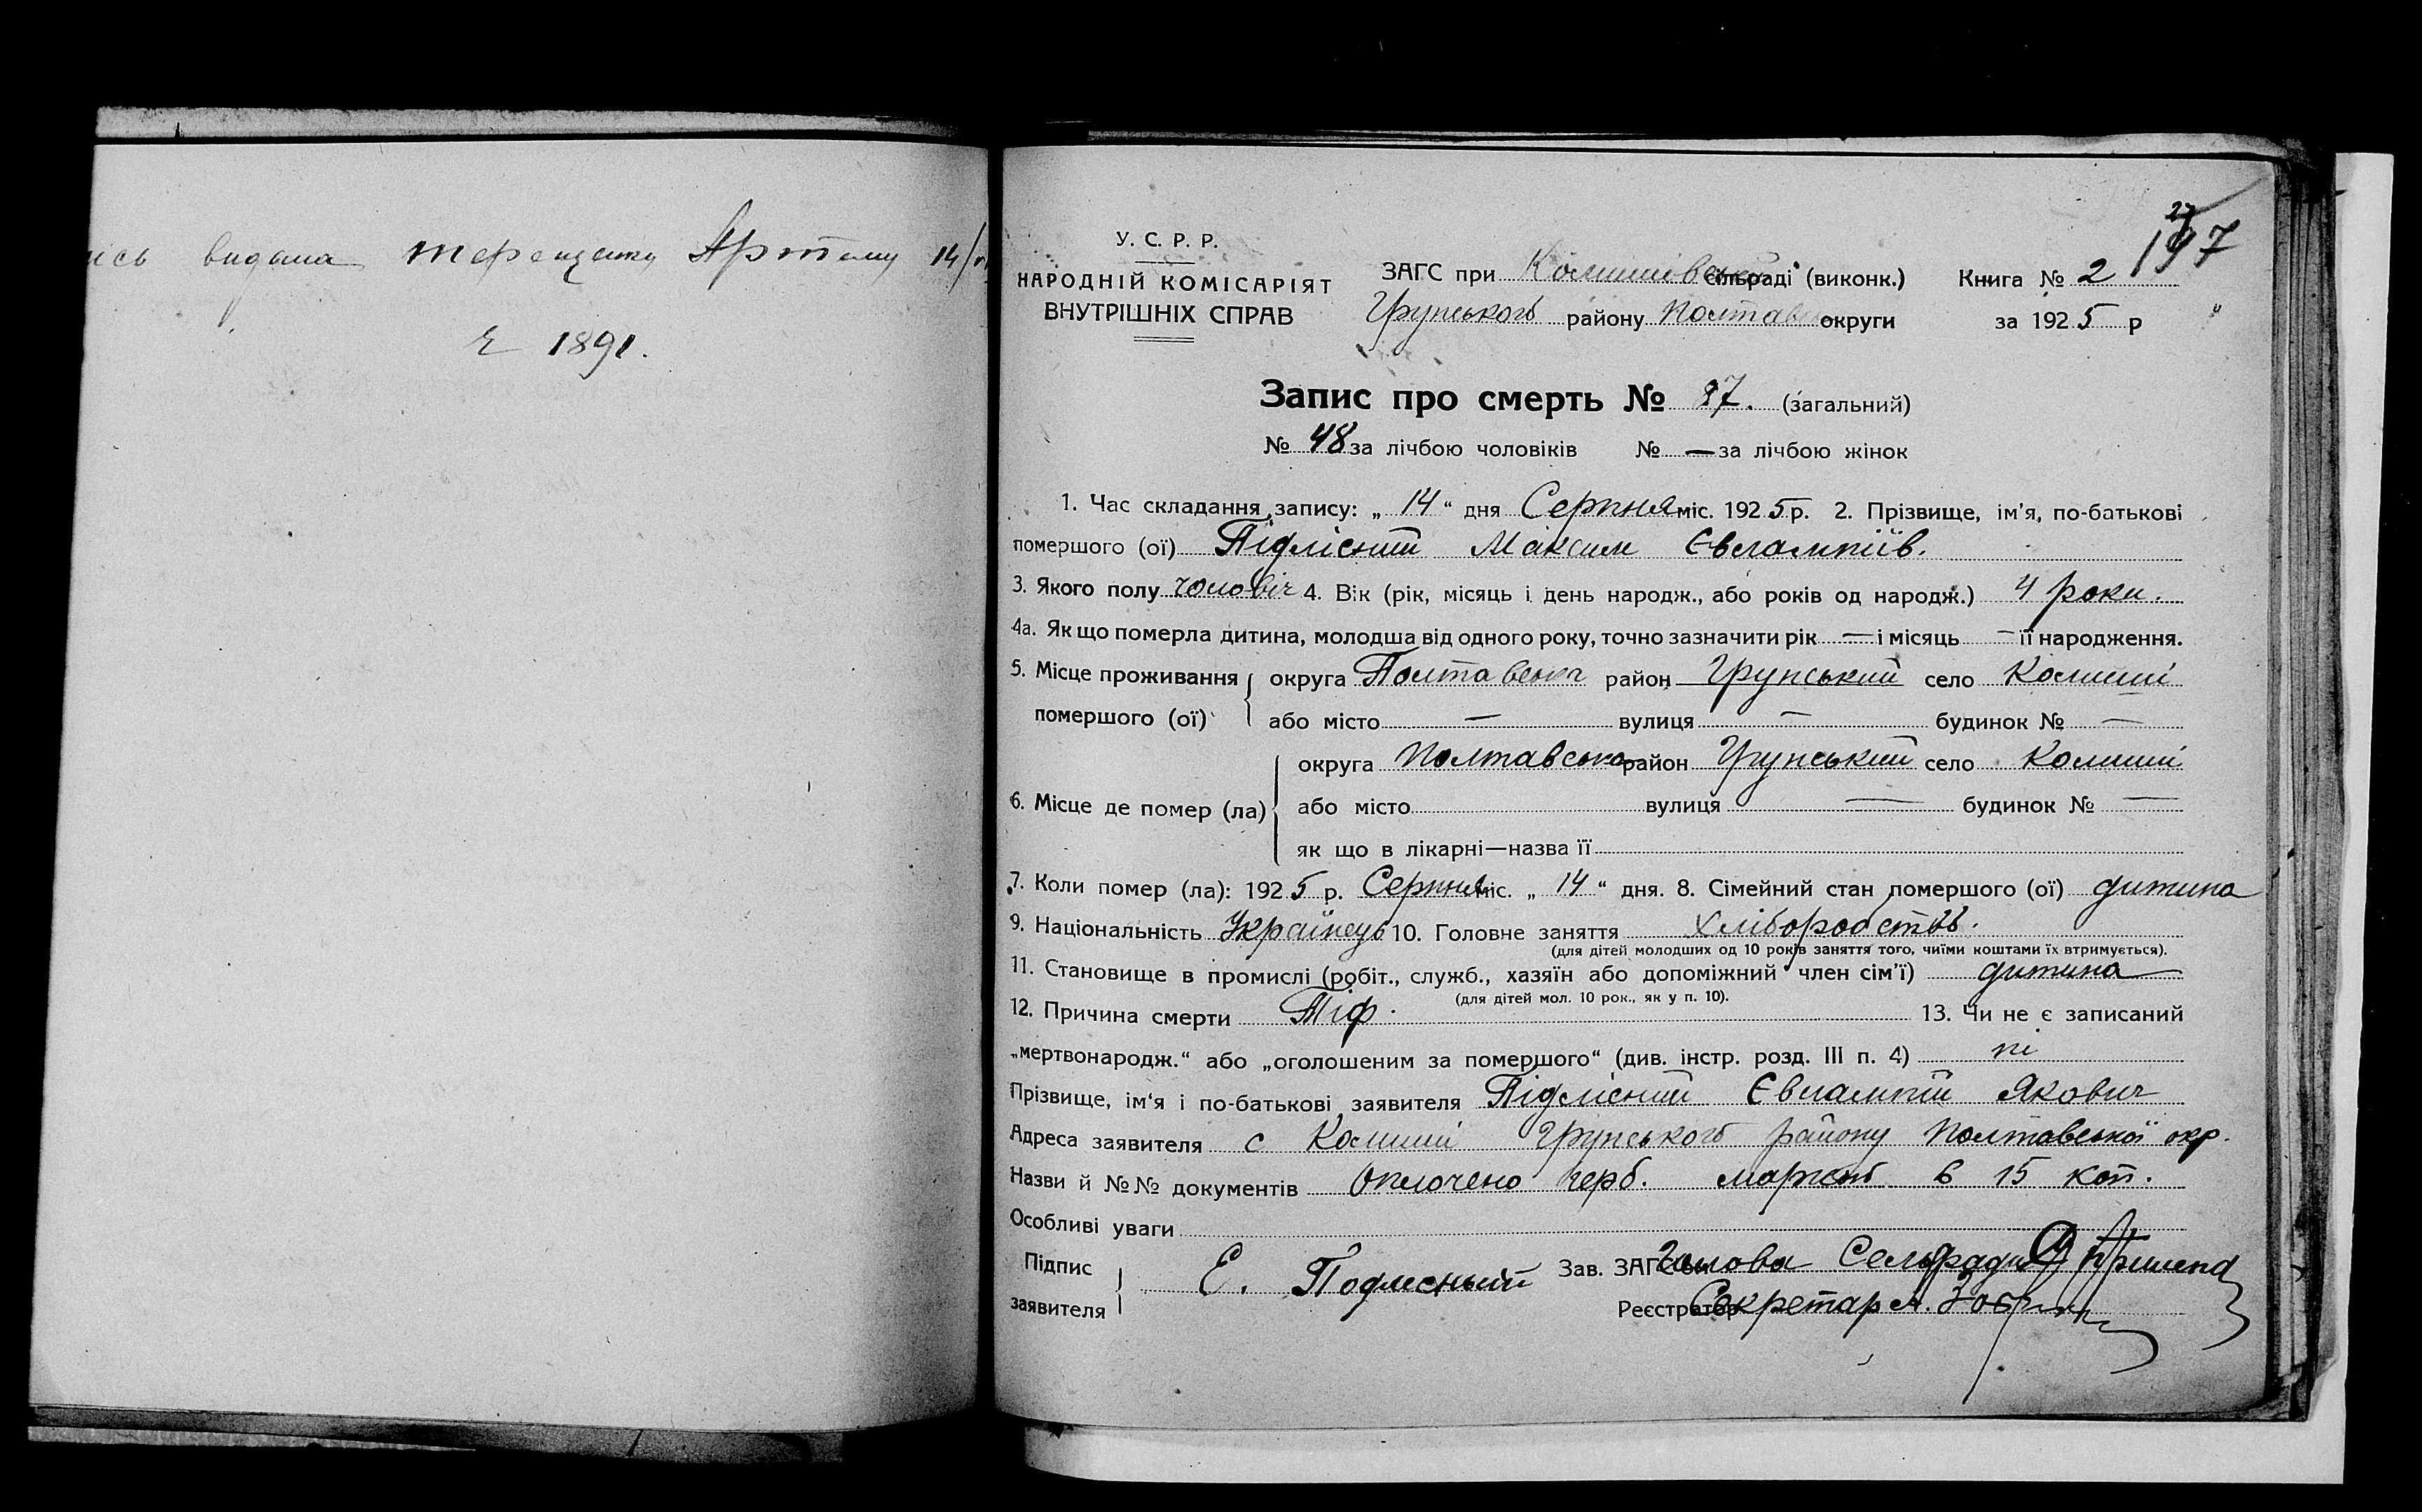 видана Терещенку Артему 14/
Е 1891.
197
У. С. Р. Р.
НАРОДНІЙ КОМІСАРІЯТ
ВНУТРІШНІХ СПРАВ
ЗАГС при Комишівській сільраді (виконк.) Книга № 2
Грунського району Полтав округи за 1925 р
Запис про смерть № 87. (загальний)
№ 48 за лічбою чоловіків № — за лічбою жінок
1. Час складання запису: „ 14 “ дня Серпня міс. 1925 р. 2. Прізвище, ім'я, по-батькові
помершого (ої) Підлісний Максим Євлампіїв.
3. Якого полу чоловіч 4. Вік (рік, місяць і день народж., або років од народж.) 4 роки.
4а. Як що померла дитина, молодша від одного року, точно зазначити рік — і місяць — її народження.
5. Місце проживання округа Полтавська район Грунський село Комиші
помершого (ої) або місто — вулиця — будинок № —
округа Полтавська район Грунський село Комиші
6. Місце де помер (ла) або місто вулиця — будинок № —
як що в лікарні—назва її
7. Коли помер (ла): 1925 р. Серпня міс. „ 14 “ дня. 8. Сімейний стан помершого (ої) дитина
9. Національність Українець 10. Головне заняття хліборобство.
(для дітей молодших од 10 років заняття того, чиїми коштами їх втримується).
11. Становище в промислі (робіт., служб., хазяїн або допоміжний член сім'ї) дитина
(для дітей мол. 10 рок., як у п. 10).
12. Причина смерти Тіф. 13. Чи не є записаний
„мертвонародж.“ або „оголошеним за помершого“ (див. інстр. розд. III п. 4) ні
Прізвище, ім'я і по-батькові заявителя Підлісний Євлампій Якович
Адреса заявителя с Комиші Грунського району Полтавської окр.
Назви й №№ документів Оплочено герб. марком в 15 коп.
Особливі уваги
Підпис
заявителя Е. Подлесный
Зав. ЗАГС'ом Голова Сельради
Реєстратор Секретар